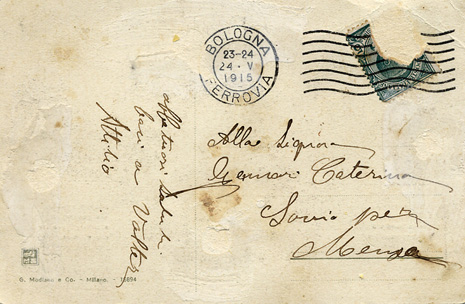 BOLOGNA
23-24
24 · V
1915
FERROVIA
Alla Signora
Gennari Caterina
Savio per
affettuosi saluti.
baci a Valter
Attilio
G. Modiano e Co. - Milano. - 15894